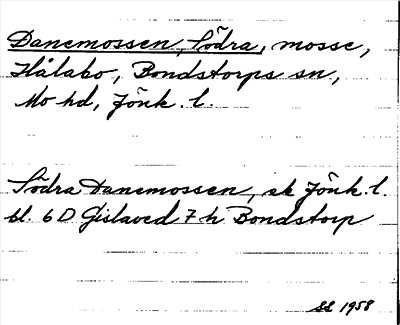 Danemossen, Södra, mosse,
Hålabo, Bondstorps sn,
Mo hd, Jönk. l.
Södra Danemossen, ek Jönk. l.
bl. 6 D Gislaved 7 h Bondstorp
SL 1958